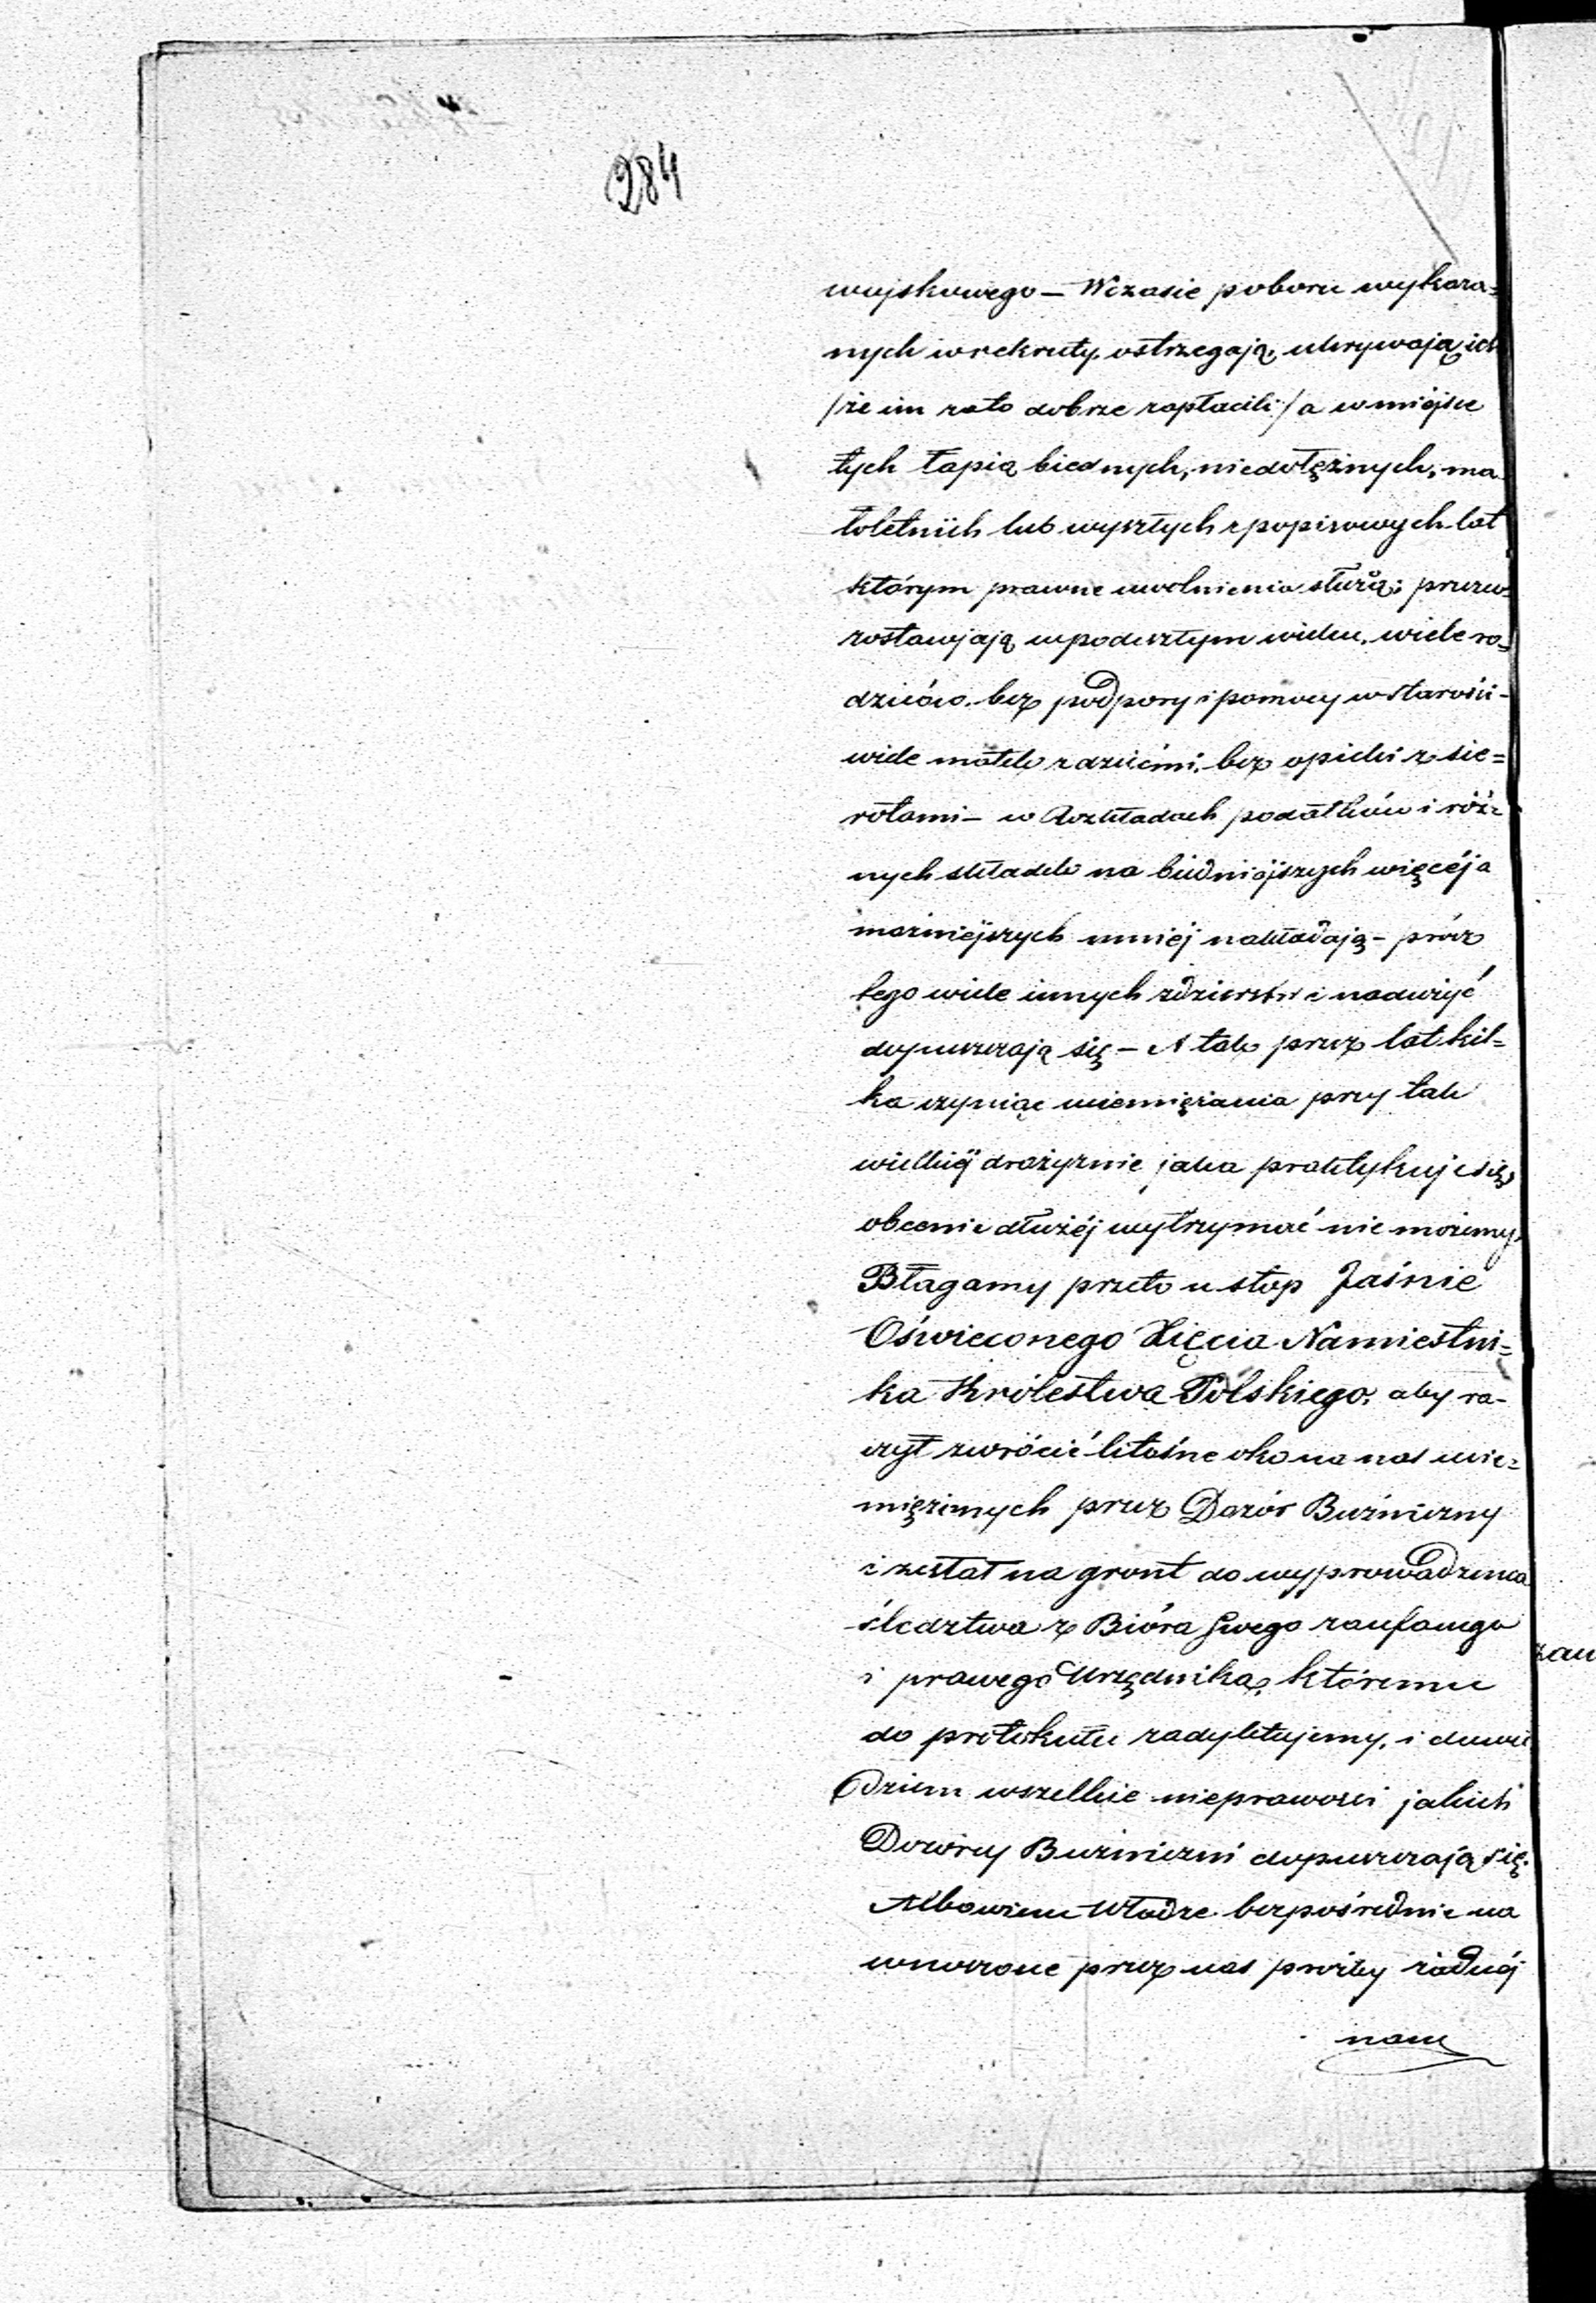 284
wojskowego – W czasie poboru wykaza=
nych w rekruty, ostrzegają, ukrywają ich
/że im za to dobrze zapłacili/ a w miéjsce
tych łapią biednych, niedołężnych, ma
łoletnich lub wyszłych z popisowych lat
którym prawne uwolnienia służą; przez co
zostawjają w podeszłym wieku, wiele ro=
dziców bez podpory i pomocy w starości –
wiele matek z dziećmi, bez opieki z sie=
rotami – w Rozkładach podatków i róż=
nych składek na biedniéjszych więcéj a
możniéjszych mniéj nakładają – prócz
tego wiele innych zdzierstw i nadużyć
dopuszczają się – A tak przez lat kil=
ka czyniąc uciemiężania przy tak
wielkiéj drożyznie jaka praktykuje się,
obecnie dłużéj wytrzymać nie możemy.
Błagamy przeto u stop Jaśnie
Oświeconego Xięcia Namiestni=
ka Królestwa Polskiego, aby ra-
czył zwrócić litośne oko na nas ucie=
miężonych przez Dozór Bużniczny
i zesłał na gront do wyprowadzenia
śledztwa z Bióra Swego zaufanego
i prawego Urzędnika, któremu
do protokułu zadyktujemy, i dowie
dziem wszelkie nieprawości jakich
Dozórcy Bużniczni dopuszczają się.
Albowiem Władze bezpośrednie na
wnoszone przez nas prożby żadnéj
nam
zau